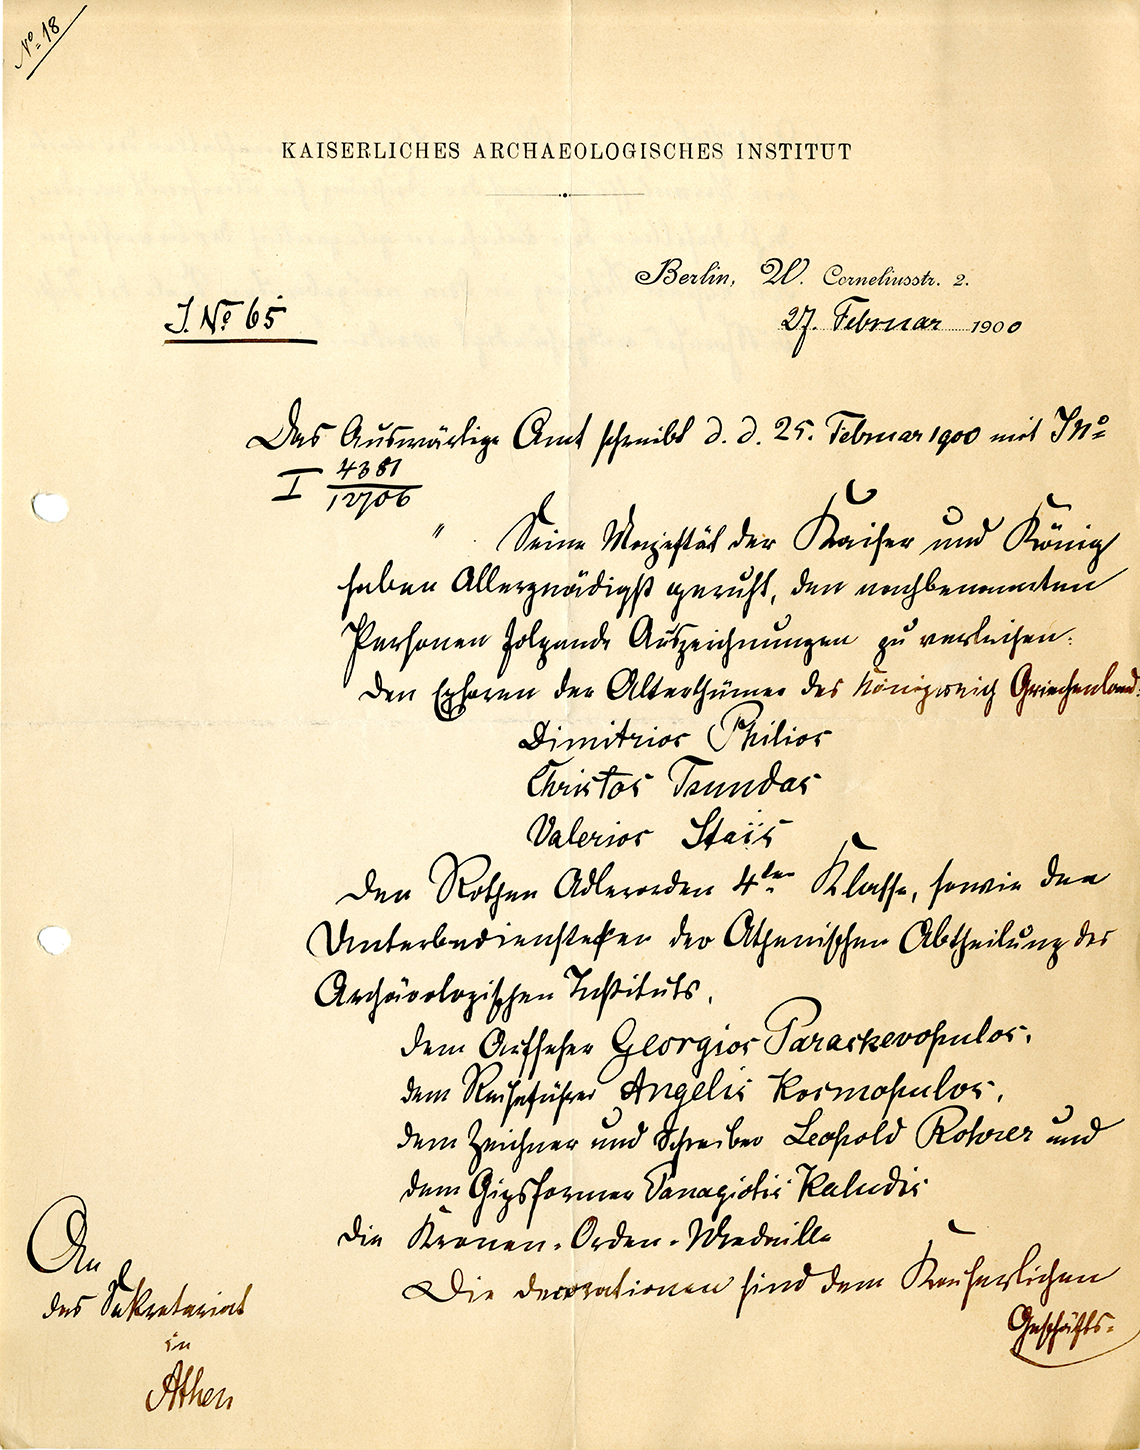 No 18
KAISERLICHES ARCHAEOLOGISCHES INSTITUT
Berlin, W. Corneliusstr. 2.
27. Februar 1900
J. No 65
Das Auswärtige Amt schreibt d. d. 25. Februar 1900 mit J No
I 4381
12706
" Seine Majestät der Kaiser und König
haben Allergnädigst geruht, den nachbenannten
Personen folgende Auszeichnungen zu verleihen:
den Ephoren der Alterthümer des Königreich Griechenland:
Dimitrios Philios
Christos Tsundas
Valerios Staïs
den Rothen Adlerorden 4ter Klasse, sowie den
Unterbediensteten der Athenischen Abtheilung des
Archäologischen Instituts,
dem Aufseher Georgios Paraskevopulos,
dem Reiseführer Angelis Kosmopulos,
dem Zeichner und Schreiber Leopold Rohrer und
dem Gipsformer Panagiotis Kaludis
die Kronen-Orden-Medaille
Die Decorationen sind dem Kaiserlichen
Geschäfts-
An
das Sekretariat
in
Athen